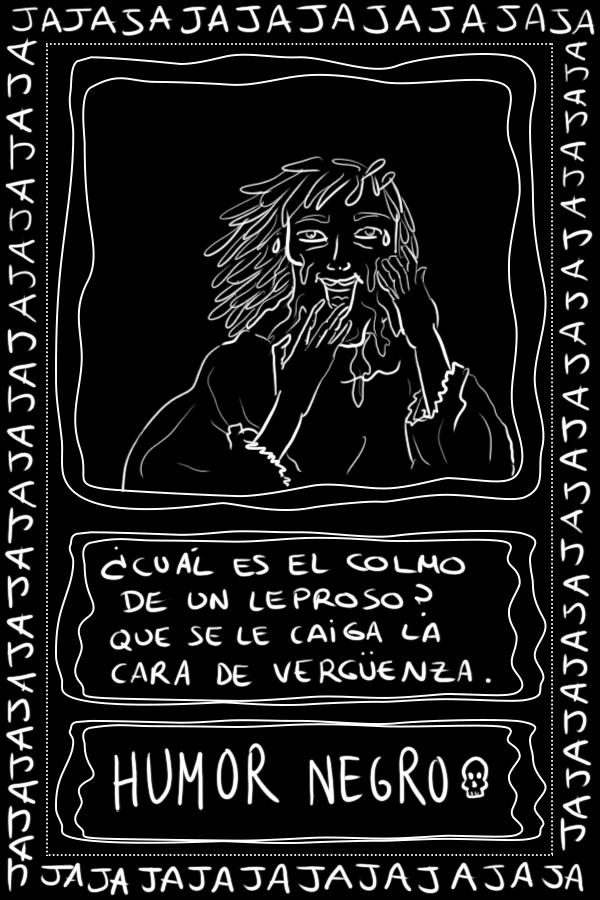 JAJAJAJAJAJAJAJAJAJAJA
JAJAJAJAJAJAJAJAJAJAJAJAJAJAJAJAJA
¿CUÁL ES EL COLMO
DE UN LEPROSO?
QUE SE LE CAIGA LA
CARA DE VERGÜENZA.
HUMOR NEGRO
JAJAJAJAJAJAJAJAJAJAJAJAJAJAJAJA
JAJAJAJAJAJAJAJAJAJA